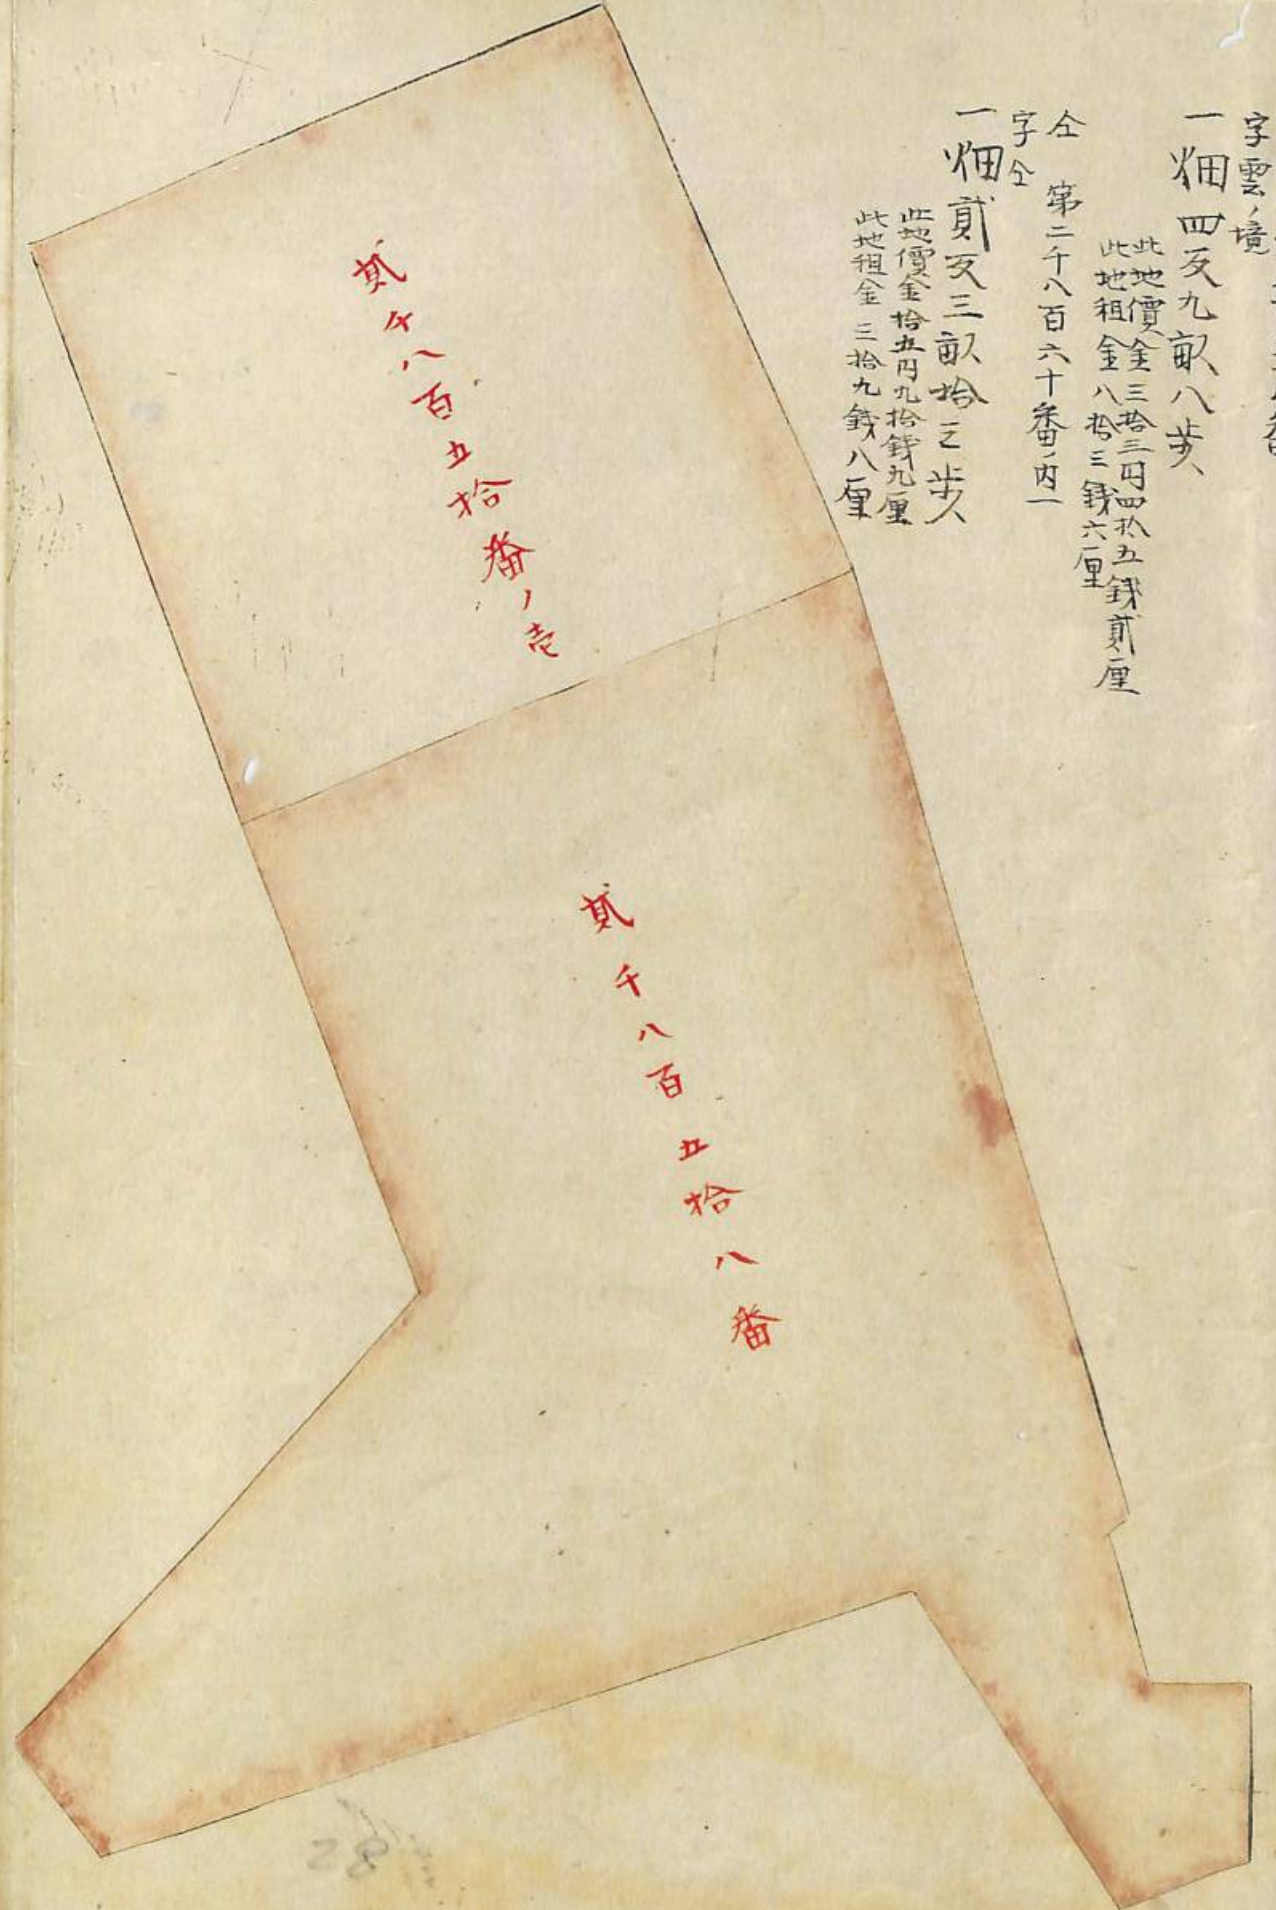 字雲ノ境
一畑四反九畝八歩
此地價金三拾三円四拾五錢貳厘
此地租金八拾三錢六厘
仝 第二千八百六十番ノ内一
字仝
一畑貳反三畝拾三歩
此地價金拾五円九拾錢九厘
此地租金三拾九錢八厘
貳千八百五拾番ノ壱
貳千八百五拾八番
28